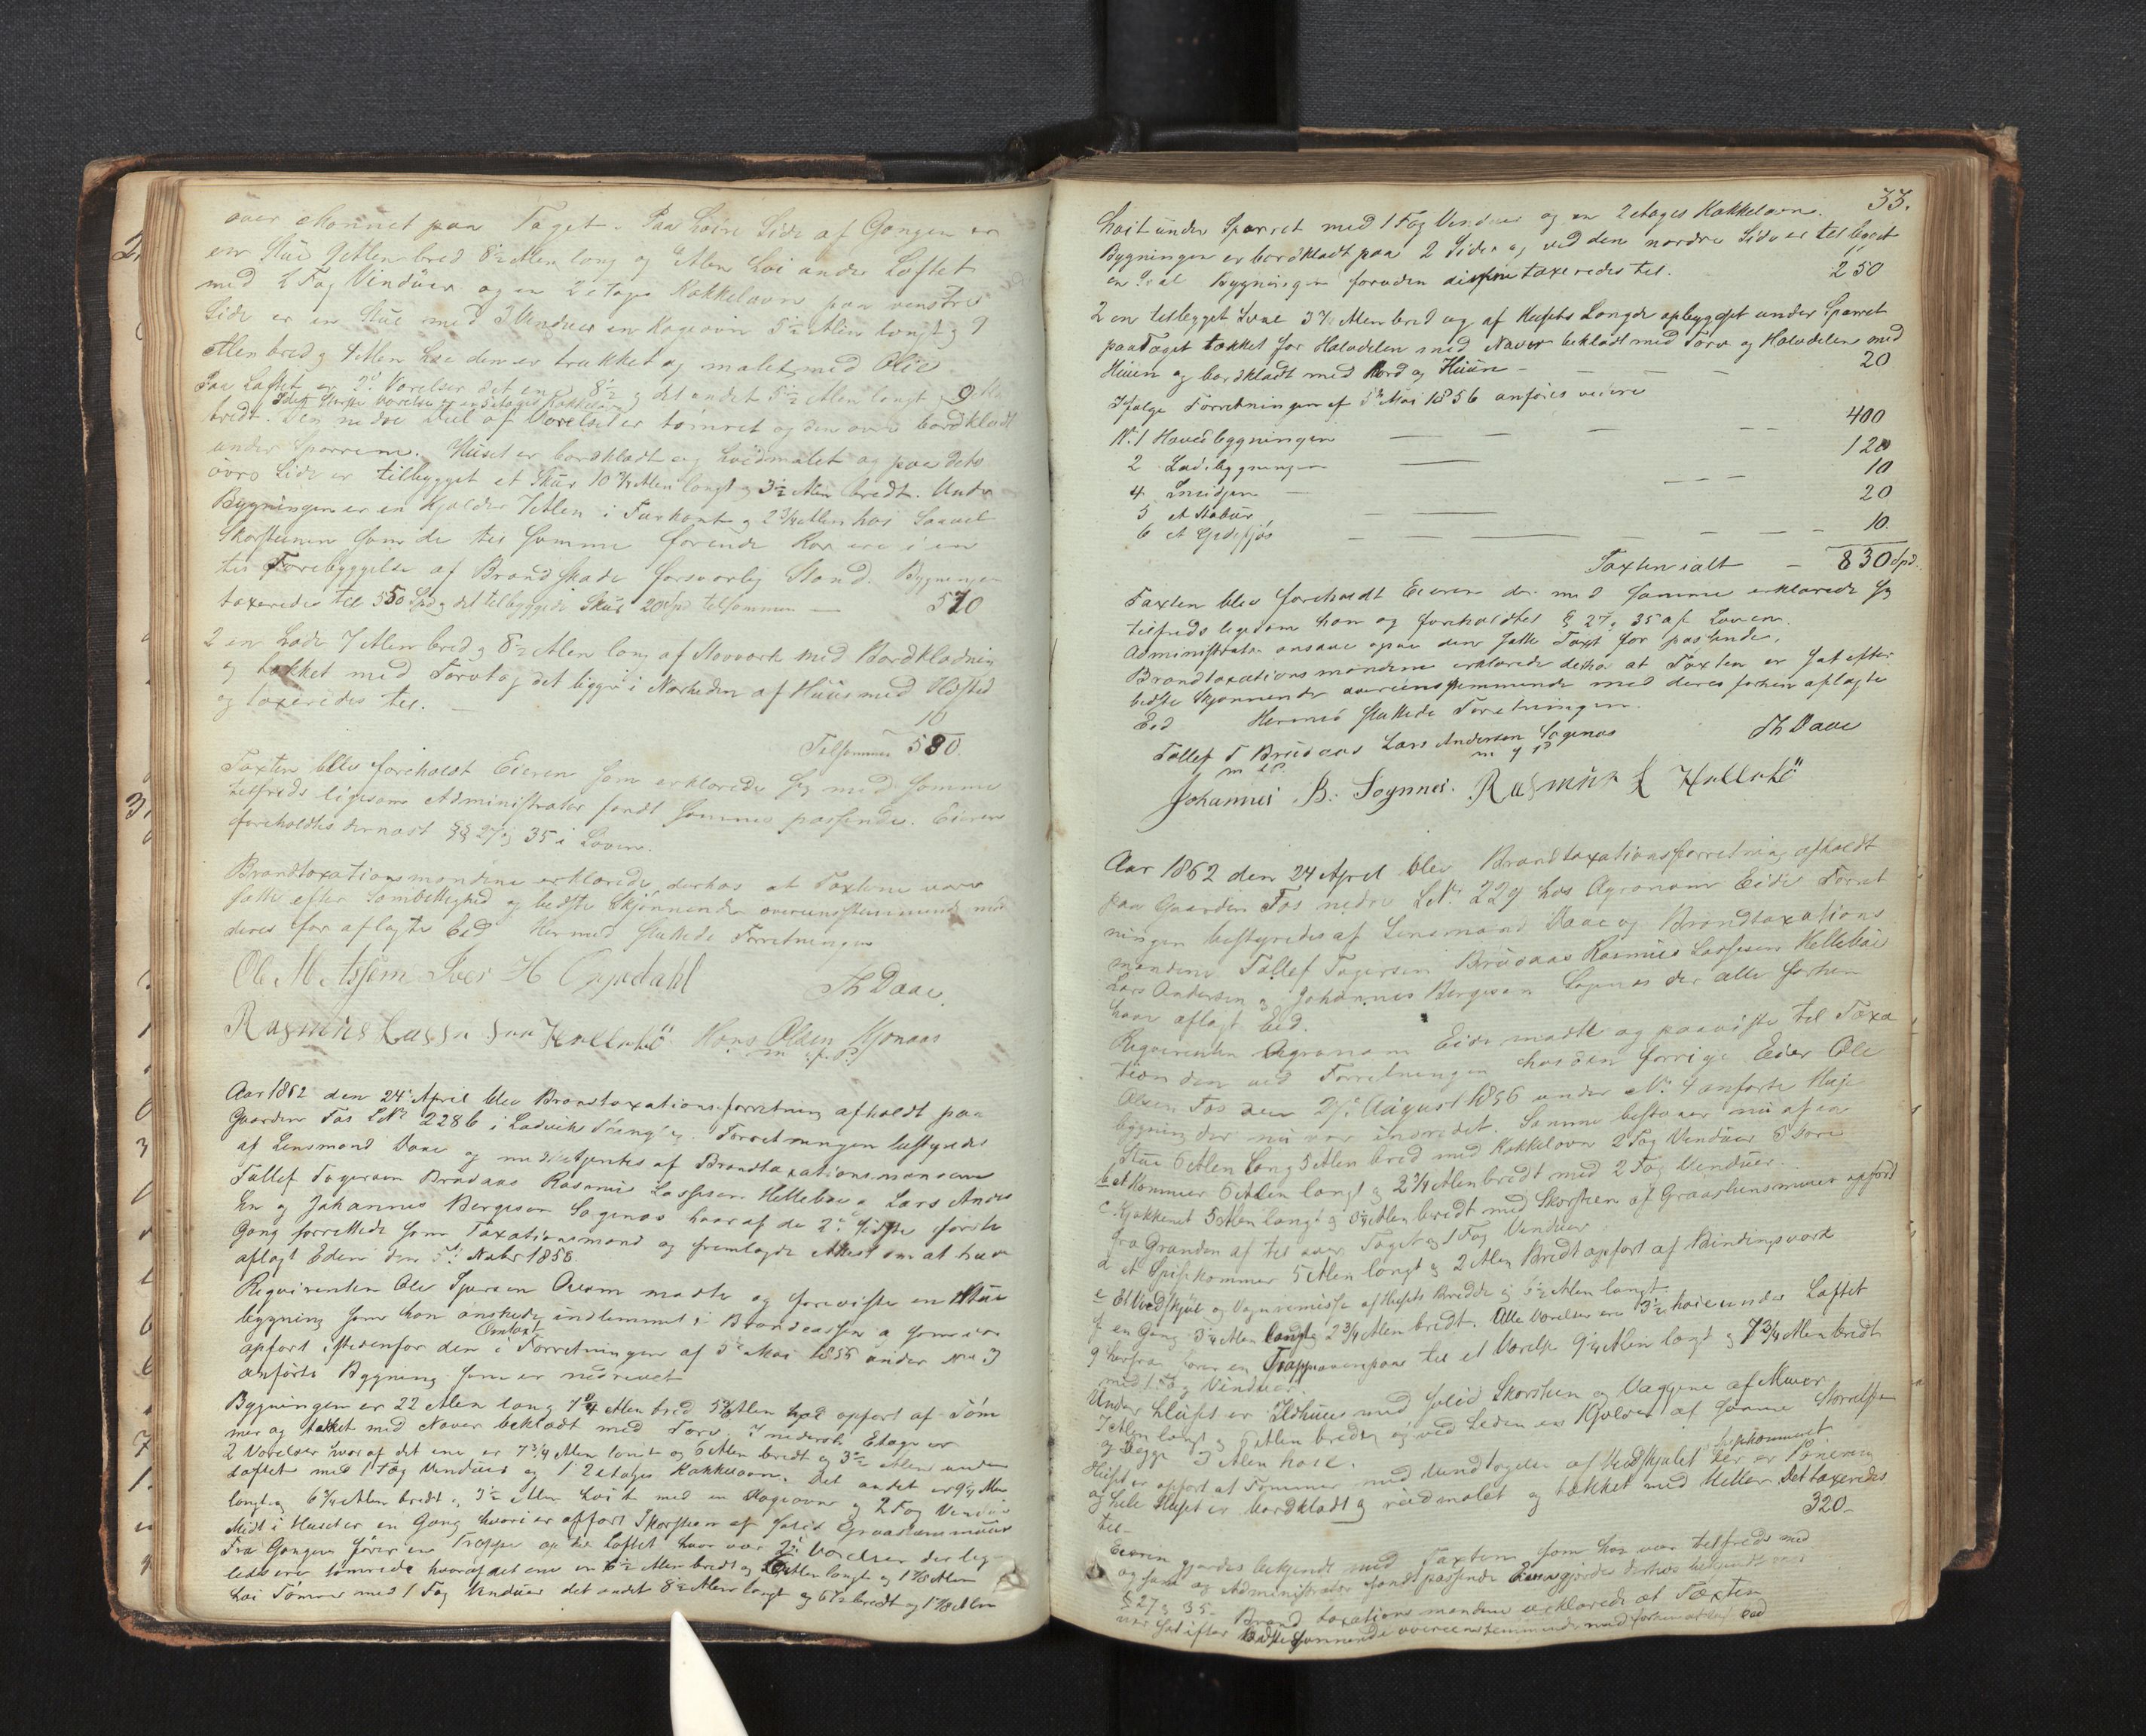 over Mønnet paa Taget. Paa høire Side af Gangen er
en Stue 9 Alen bred 8½ Alen lang og Alen høi under Loftet
med 2 Fag Vinduer og en 2 etages Kakkelovn paa venstre
Side er en Stue med 3 Vinduer en Kogeovn 5½ Alen langt og 9
Alen bred og 4 Alen den er trukket og malet med Olie
Paa Loftet er 2de Værelser det ene 8½ og det andet 5½ Alen langt 9 Alen
I det største Værelse er en 3 etages Kakkelovn
bredt. Den nedre Deel af Værelset er tømret og den øvre bordklædt
under Sperrene. Huset er bordklædt og hvidmalet og paa dets
øvre Side er tilbygget et Skur 10¾ Alen langt og 3½ Alen bredt. Under
Bygningen er en Kjelder 7 Alen i Fiirkant og 2¾ Alen høi Saavel
Skorstenen som de til samme førende Rør ere i en
til Forebyggelse af Brandskade forsvarlig Stand. Bygningen
taxeredes til 550 Spd og det tilbyggede Skur 20 Spd tilsammen — 570
2 en Lade 7 Alen bred og 8½ Alen lang af Stavværk med Bordklædning
og tækket med Torvtag det ligger i Nærheden af Huus med Ildsted
og taxeredes til. — 10
Tilsammen 580.
Taxten blev foreholdt Eieren som erklærede sig med samme
tilfreds ligesom Administrator fandt samme passende. Eieren
foreholdtes dernæst §§ 27 og 35 i Loven.
Brandtaxationsmændene erklærede derhos at Taxterne vare
satte efter Samvittighed og bedste Skjønnende overensstemmende med
deres før aflagte Eed Hermed sluttede Forretningen
Ole M. Iver H Oppedahl Th Daae.
Rasmus Lasse Sen Hellebø Hans Olsen
m. f. P.
Aar 1862 den 24de April blev Brandtaxationsforretning afholdt paa
Gaarden Fos L.Nr 228b i Ladvik Thinglag. Forretningen bestyredes
af Lensmand Daae og medbetjentes af Brandtaxationsmændene
Tollef Brudaas Rasmus Lassesen Hellebø og Lars Anders
sen og Johannes Bergesen Søgnæs hvoraf de 2de sidste første
Gang forrettede som Taxationsmænd og fremlagde Attest om at have
aflagt Eden den 5te Novbr 1858.
Reqvirenten Ole mødte og foreviste en Stue
bygning som han ønskede indlemmet i Brandcassen og som var
Omtaxt
opført istedenfor den i Forretningen af 5te Mai 1856 under No 3
anførte Bygning som er nedrevet
Bygningen er 22 Alen lang 7¾ Alen bred 5¾ Alen høi opført af Tøm
mer og tækket med Næver beklædt med Torv. I nederste Etage er
2 Værelser hvoraf det ene er 7¾ Alen langt og 6 Alen bredt og 3½ Alen under
Loftet med 1 Fag Vinduer og 1 2 etages Kakkelovn. Det andet er 9¼ Alen
langt og 6¾ Alen bredt og 3½ Alen høit med en Kogeovn og 2 Fag Vinduer
Midt i Huset er en Gang hvori er opført Skorsteen af solid Graasteensmuur
Fra Gangen fører en Trappe op til Loftet hvor var 2de Værelser der lige
ledes ere tømrede hvoraf det ene en 6½ Alen bredt og 6 Alen langt og 1⅞ Alen
høi Tømmer med 1 Fag Vinduer det andet 8½ Alen langt og 6½ bredt og 1⅞ Alen
33.
høit under Sperret med 1 Fag Vinduer og en 2 etages Kakkelovn.
Bygningen er bordklædt paa 2 Sider og ved den nordre Side er tilbygget
en Sval Bygningen foruden denne taxeredes til. 250
2 en tilbygget Sval 3½ Alen bred og af Husets Længde opbygget under Sperret
paa Taget tækket for Halvdelen med Næver beklædt med Torv og Halvdelen med
Huun og bordklædt med Bord og Huun — 20
Ifølge Forretningen af 5te Mai 1856 anføres videre
No. 1 Hovedbygningen — 400
2 Ladebygningen — 120
4 Smidjen — 10
5 et Stabur — 20
6 et Gjedefjøs — 10.
Taxten ialt — 830 Spd.
Taxten blev foreholdt Eieren der med samme erklærede sig
tilfreds ligesom han og foreholdtes § 27 og 35 af Loven.
Administrator ansaae ogsaa den satte Taxt for passende.
Brandtaxationsmændene erklærede derhos at Taxten er sat efter
bedste Skjønnende overeensstemmende med deres forhen aflagte
Eed Hermed sluttede Forretningen.
Tollef T Brudaas Lars Andersen Søgnæs Th Daae
m f P. m f P
Johannes B. Søgnæs. Rasmus L Hellebø
Aar 1862 den 24 April blev Brandtaxationsforretning afholdt
paa Gaarden Fos nedre L.Nr. 229 hos Agronom Eide Forret
ningen bestyredes af Lensmand Daae og Brandtaxations
mændene Tollef Brudaas Rasmus Lassesen Hellebø
Lars Andersen og Johannes Bergesen Søgnæs der alle forhen
have aflagt Eed.
Reqvirenten Agronom Eide mødte og paaviste til Taxa
tion den ved Forretningen hos den forrige Eier Ole
Olsen Fos den 27de August 1856 under No. 4 anførte Huus
bygning der nu var indredet. Samme bestaaer nu af en
Stue 6 Alen lang 5 Alen bred med Kakkelovn 2 Fag Vinduer
b et Kammer 6 Alen langt og 2¾ Alen bredt med 2 Fag Vinduer.
c Kjøkkenet 5 Alen langt og Alen bredt med Skorsteen af Graasteensmuur opført
fra Grunden af til over Taget og 1 Fag Vinduer
d et Spisekammer 5 Alen langt og 2 Alen Bredt opført af Bindingsværk
e Et Vedskjul og Vognremisse af Husets Bredde og 5½ Alen langt
f en Gang 3¼ Alen langt og 2¾ Alen bredt. Alle Værelser ere 3½ høie under Loftet
g herfra fører en Trappe ovenpaa til et Værelse 9¼ Alen langt og 7¾ Alen bredt
med 1 Fag Vinduer.
Under Huset er Ildhuus med solid Skorsteen og Væggene af Muur
7 Alen langt og 6 Alen bredt og ved Siden en Kjelder af samme Størrelse
og begge 3 Alen høie.
Huset er opført af Tømmer med Undtagelse af Vedskjulet og Spiskammeret
og hele Huset er bordklædt og rødmalet og tækket med Heller. Det taxeredes
til — 320 —
Eieren gjordes bekjendt med Taxten som han var tilfreds med
og som og Administrator fandt passende Eieren gjordes derhos bekjendt med
§ 27 og 35 — Brandtaxationsmændene erklærede at Taxten
var sat efter bedste Skjønnende overeensstemmende med forhen aflagt Eed